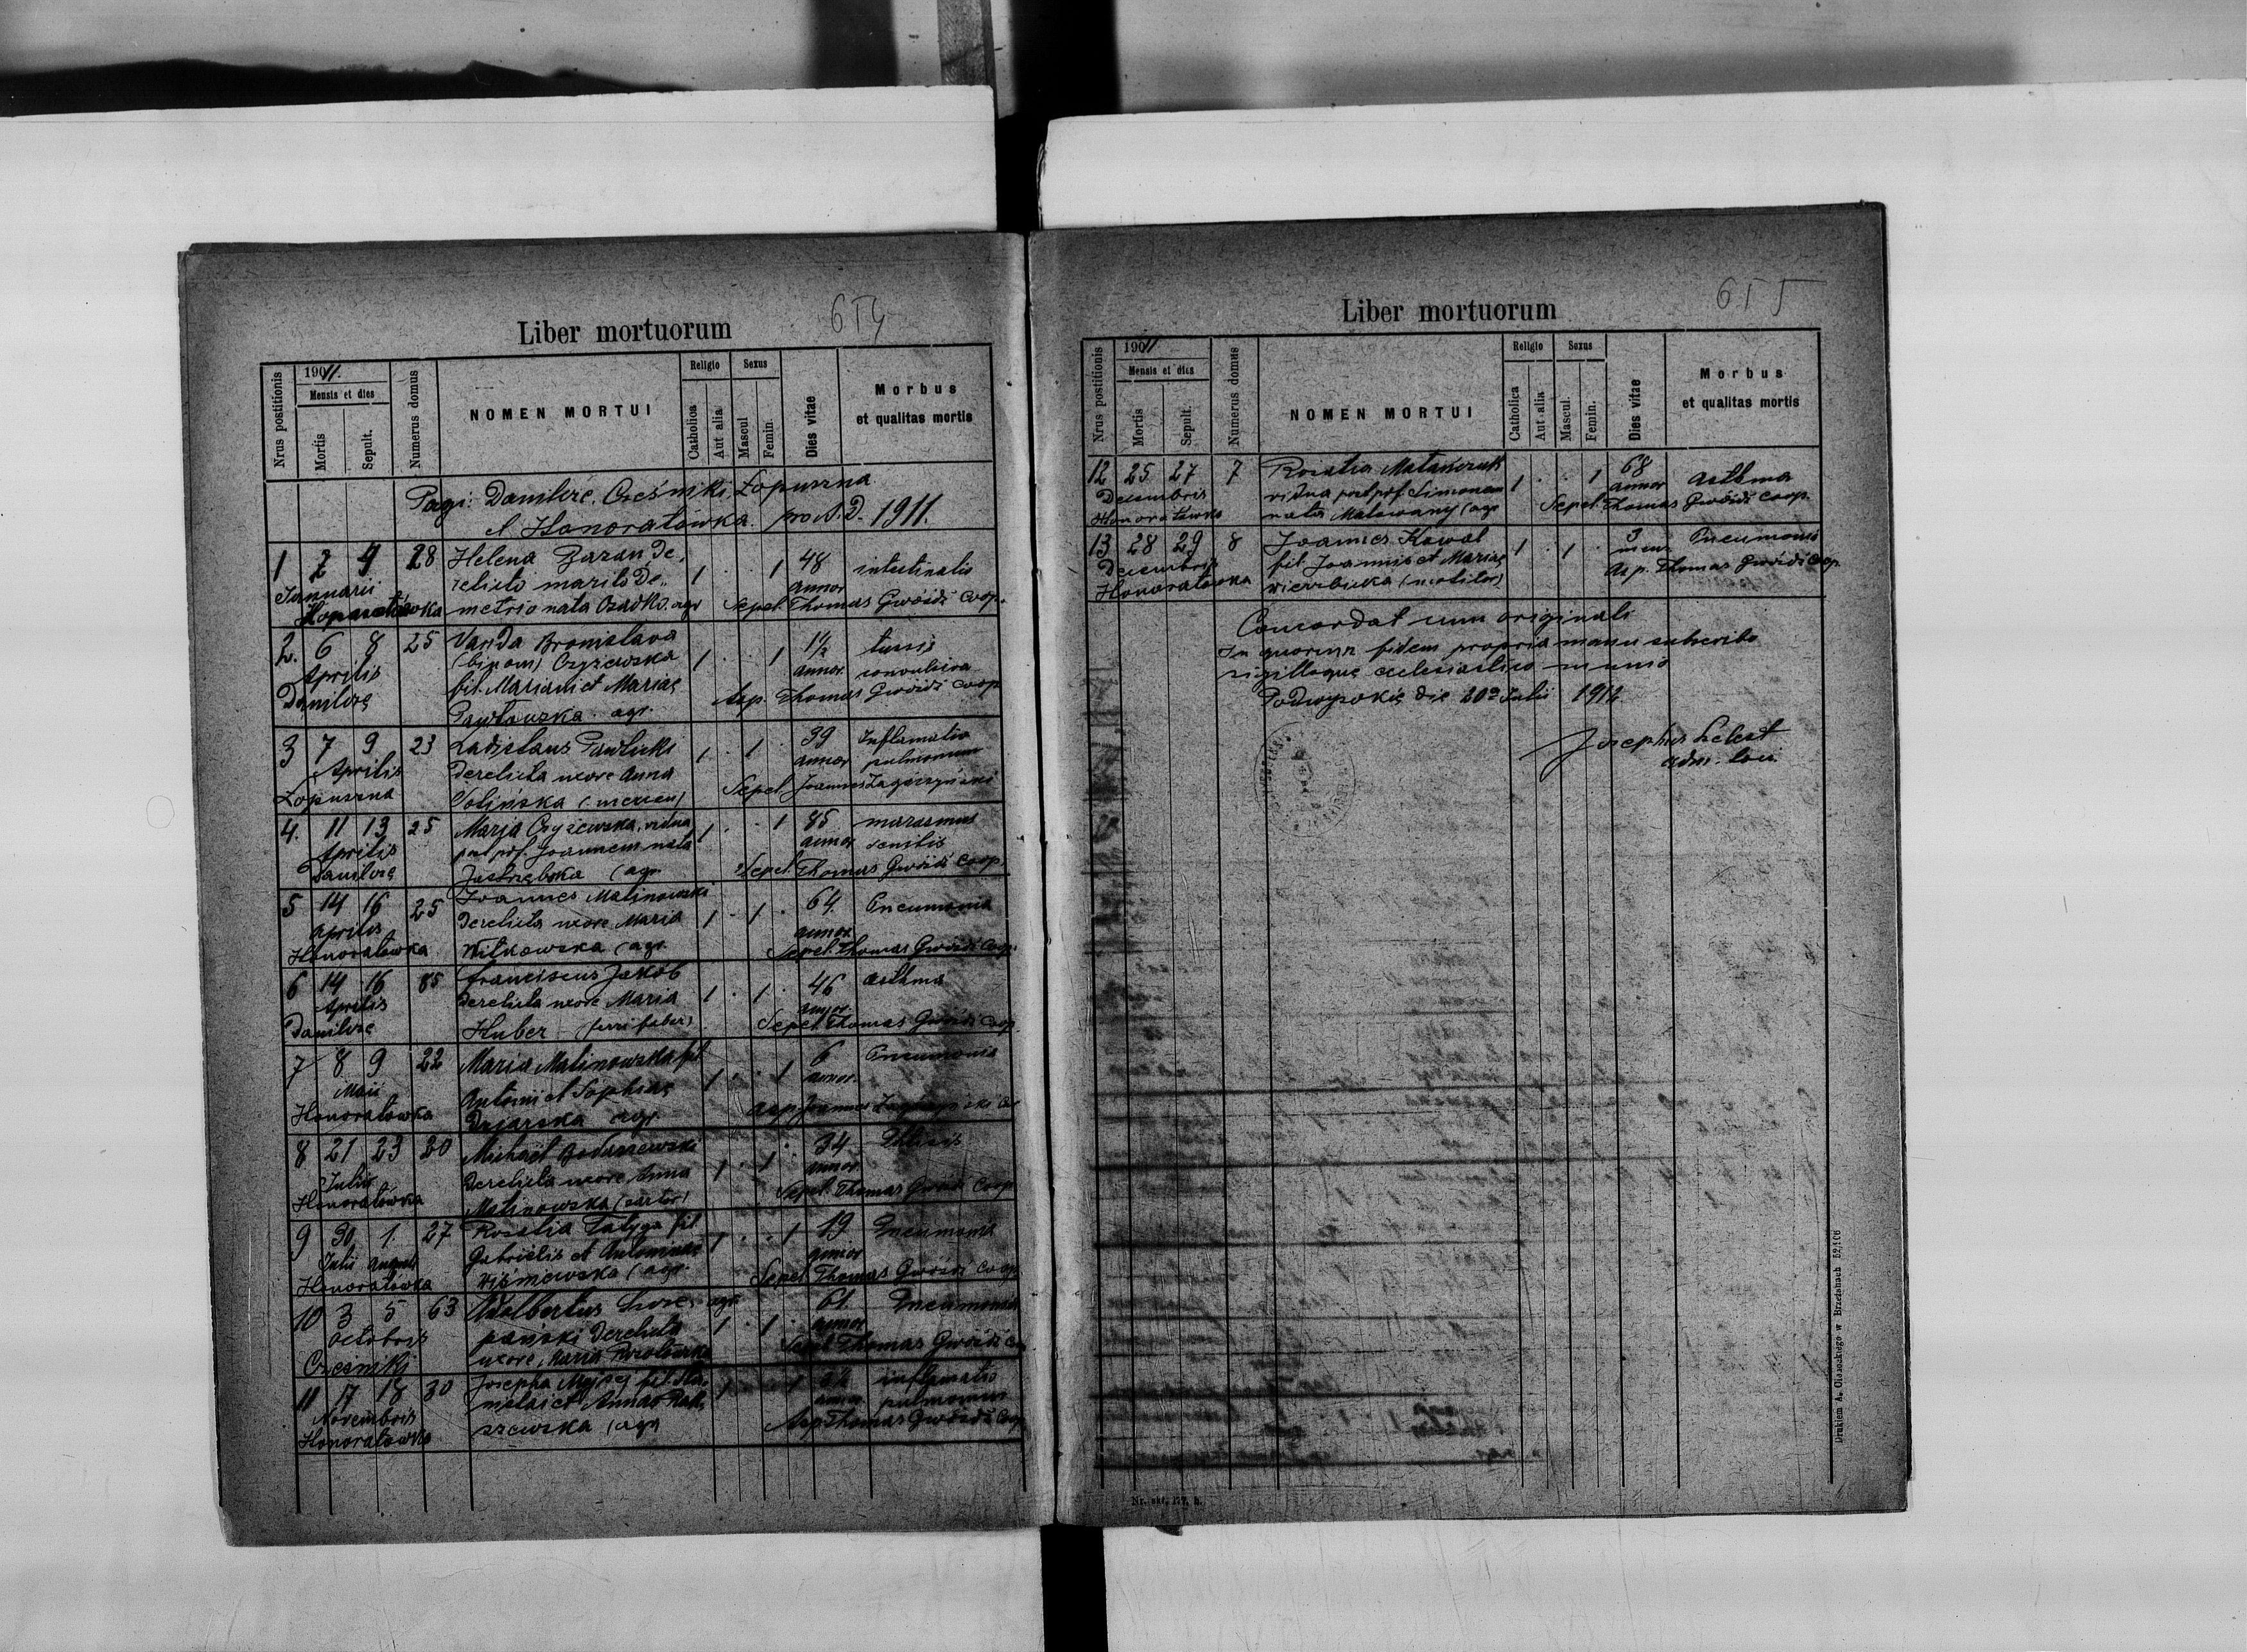 654
Liber mortuorum
Nrus postitionis
1911.
Mensis et dies
Mortis
Sepult.
Numerus domus
NOMEN MORTUI
Religio
Catholica
Aut alia
Sexus
Mascul
Femin.
Dies vitae
Morbus
et qualitas mortis
Pagi: Danilcze, Cześniki, Łopuszna
et Honoratówka. pro A. D. 1911.
1 2 4 28 Helena Baran de- 1 . . 1 48 intestinalis
Januarii relicto marito De- annor
Honoratówka metrio nata Osadko. agr Sepel. Thomas Gwóźdź Coop.
2. 6 8 25 Vanda Bronislava 1 . . 1 1½ tussis
Aprilis (binom) Czyzewska annor. convulsiva
Danilcze fil. Mariani et Mariae Asp. Thomas Gwóźdź Coop
Pawłowska. agr.
3 7 9 23 Ladislaus Pawlicki 1 . 1 . 39 Inflamatio
Aprilis derelicta uxore Anna annor pulmonum
Łopuszna Wolińska Sepel. Joannes Zagórzyński
4. 11 13 25 Maria Czyżewska, vidua 1 . . 1 85 marasmus
Aprilis post pf. Joannem nata annor senilis
Danilcze Jastrzębska (agr. Sepel. Thomas Gwóźdź Coop.
5 14 16 25 Joannes Malinowski 1 . 1 . 64. Pneumonia
Aprilis derelicta uxore Maria annor.
Honoratówka Witkowska (agr. Sepel. Thomas Gwóźdź Coop.
6 14 16 85 Franciscus Jakób 1 . 1 . 46 asthma
Aprilis derelicta uxore Maria annor.
Danilcze Huber (ferri faber) Sepel. Thomas Gwóźdź Coop.
7 8 9 22 Maria Malinowska fil. 1 . . 1 6 Pneumonia
Maii Antonii et Sophiae annor.
Honoratówka agr. Asp. Joannes
8 21 23 20 Michaël Bednarzewski 1 . 1 . 34 Phtisis
Julii derelicta uxore Anna annor.
Honoratówka Malinowska Sepel. Thomas Gwóźdź Coop
9 30 1. 27 Rosalia Tatyga fil. 1 . . 1 19 Pneumonia
Julii Augusti Gabrielis et Antoninae annor
Honoratówka Wiśniewska (agr. Sepel. Thomas Gwóźdź Coop
10 3 5 63 Adalbertus agr. 1 . 1 . 61. Pneumonia
Octobris derelicta annor
Cześniki uxore Maria Sepel. Thomas Gwóźdź
11 17 18 30 Josepha fil. 1 . . 1 inflamatio
Novembris et Annae annor pulmonum
Honoratówka (agr Asp. Thomas Gwóźdź Coop
655
Liber mortuorum
Nrus postitionis
1911
Mensis et dies
Mortis
Sepult.
Numerus domus
NOMEN MORTUI
Religio
Catholica
Aut alia
Sexus
Mascul.
Femin.
Dies vitae
Morbus
et qualitas mortis
12 25 27 7 Rosalia Matakczuk 1 . . 1 68 asthma
Decembris vidua post pf. Simonem annor
Honoratówka nata Malowany (agr Sepel. Thomas Gwóźdź Coop.
13 28 29 8 Joannes Kowal 1 . 1 . 3 Pneumonia
Decembris fil. Joannis et Mariae mens.
Honoratówka Wierzbicka Asp. Thomas Gwóźdź Coop.
Concordat cum originali
In quorum fidem propria manu subscribo
sigilloque ecclesiastico munio
Podwysokie die 20a Julii 1912
Josephus
adm. loci
Drukiem A. Ciasoskiego w Brzeżanach